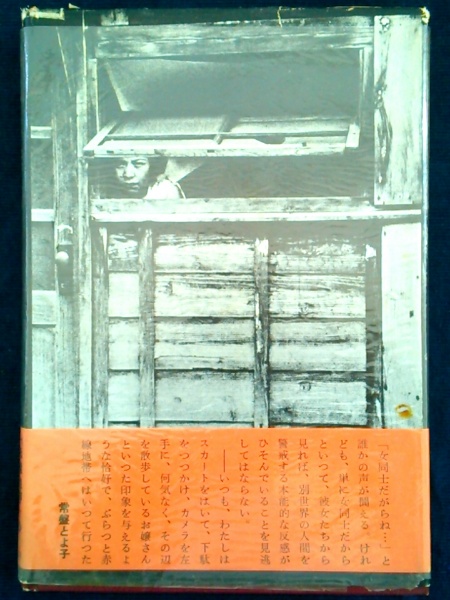 『女同士だからね…』と
誰かの声が聞える。けれ
ども、単に女同士だから
といつて、彼女たちから
見れば、別世界の人間を
警戒する本能的な反感が
ひそんでいることを見逃
してはならない。
――いつも、わたしは
スカートをはいて、下駄
をつつかけ、カメラを左
手に、何気なく、その辺
を散歩しているお嬢さん
といつた印象を与えるよ
うな恰好で、ぶらつと赤
線地帯へはいつて行つた
常盤とよ子